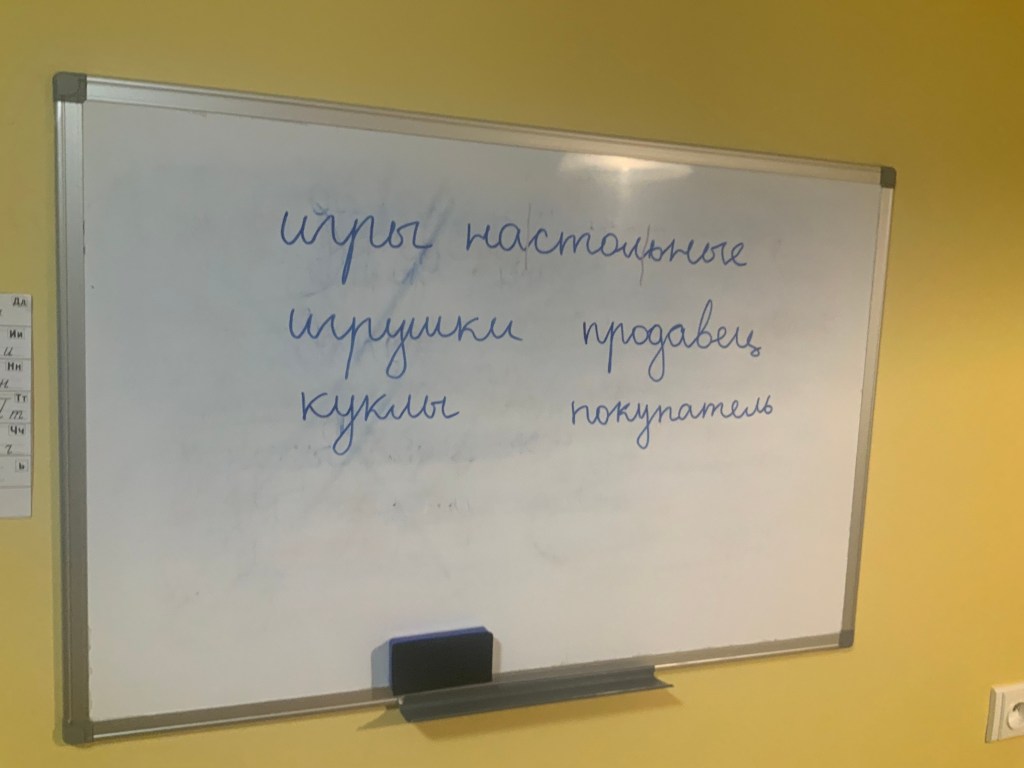 игры настольные
игрушки продавец
куклы покупатель
Дд
Ии
и
Нн
н
Тт
т
Чч
ч
ь